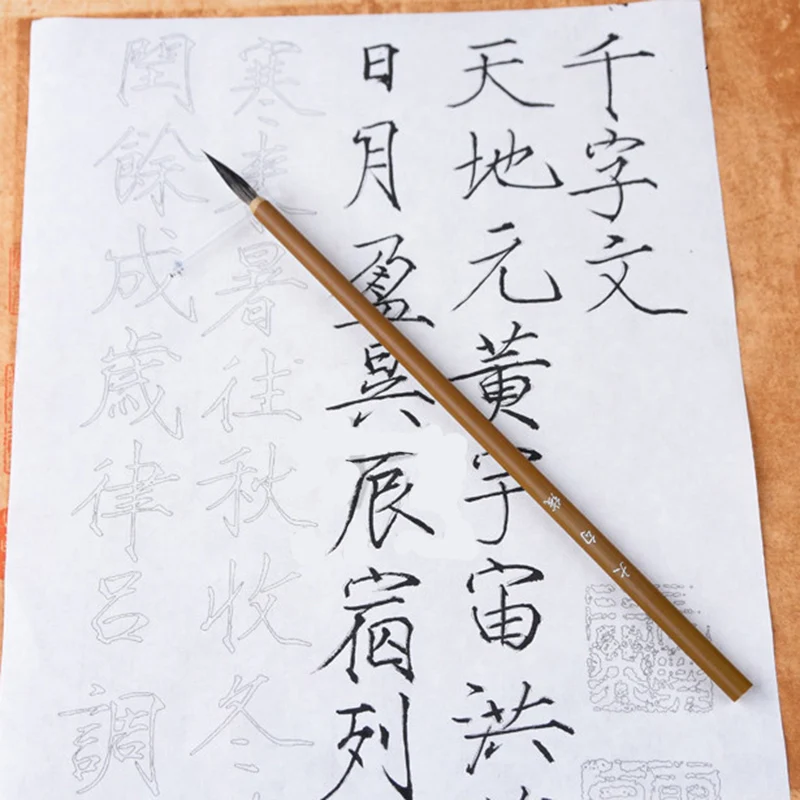 千字文
天地元黃宇宙洪
日月盈昃辰宿列
寒來暑往秋收冬
閏餘成歲律呂調
大白雲